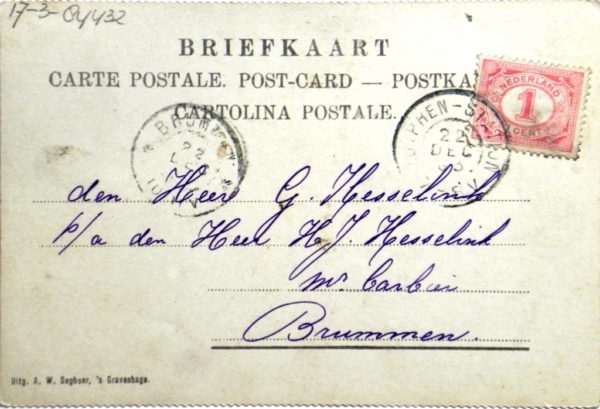 17-3-
BRIEFKAART
CARTE POSTALE. POST-CARD — POSTKA
CARTOLINA POSTALE.
NEDERLAND
1
CENT
BRUMMEN
22
PHEN-STATION
22
DEC
den Heer G. Hesselink
p/a den Heer H.J. Hesselink
Mr
Brummen.
Uitg. A. W. Segboer, 's Gravenhage.